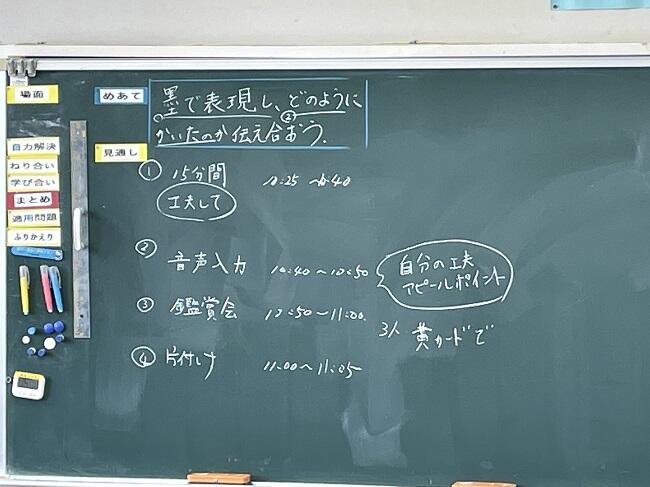 場面
めあて
墨で表現し、どのように
① ②
かいたのか伝え合おう。
自力解決
ねり合い
学び合い
まとめ
適用問題
ふりかえり
見通し
① 15分間 10:25 〜10:40
工夫して
② 音声入力 10:40〜10:50
自分の工夫
アピールポイント
③ 鑑賞会 10:50〜11:00
3人 黄カードで
④ 片付け 11:00〜11:05